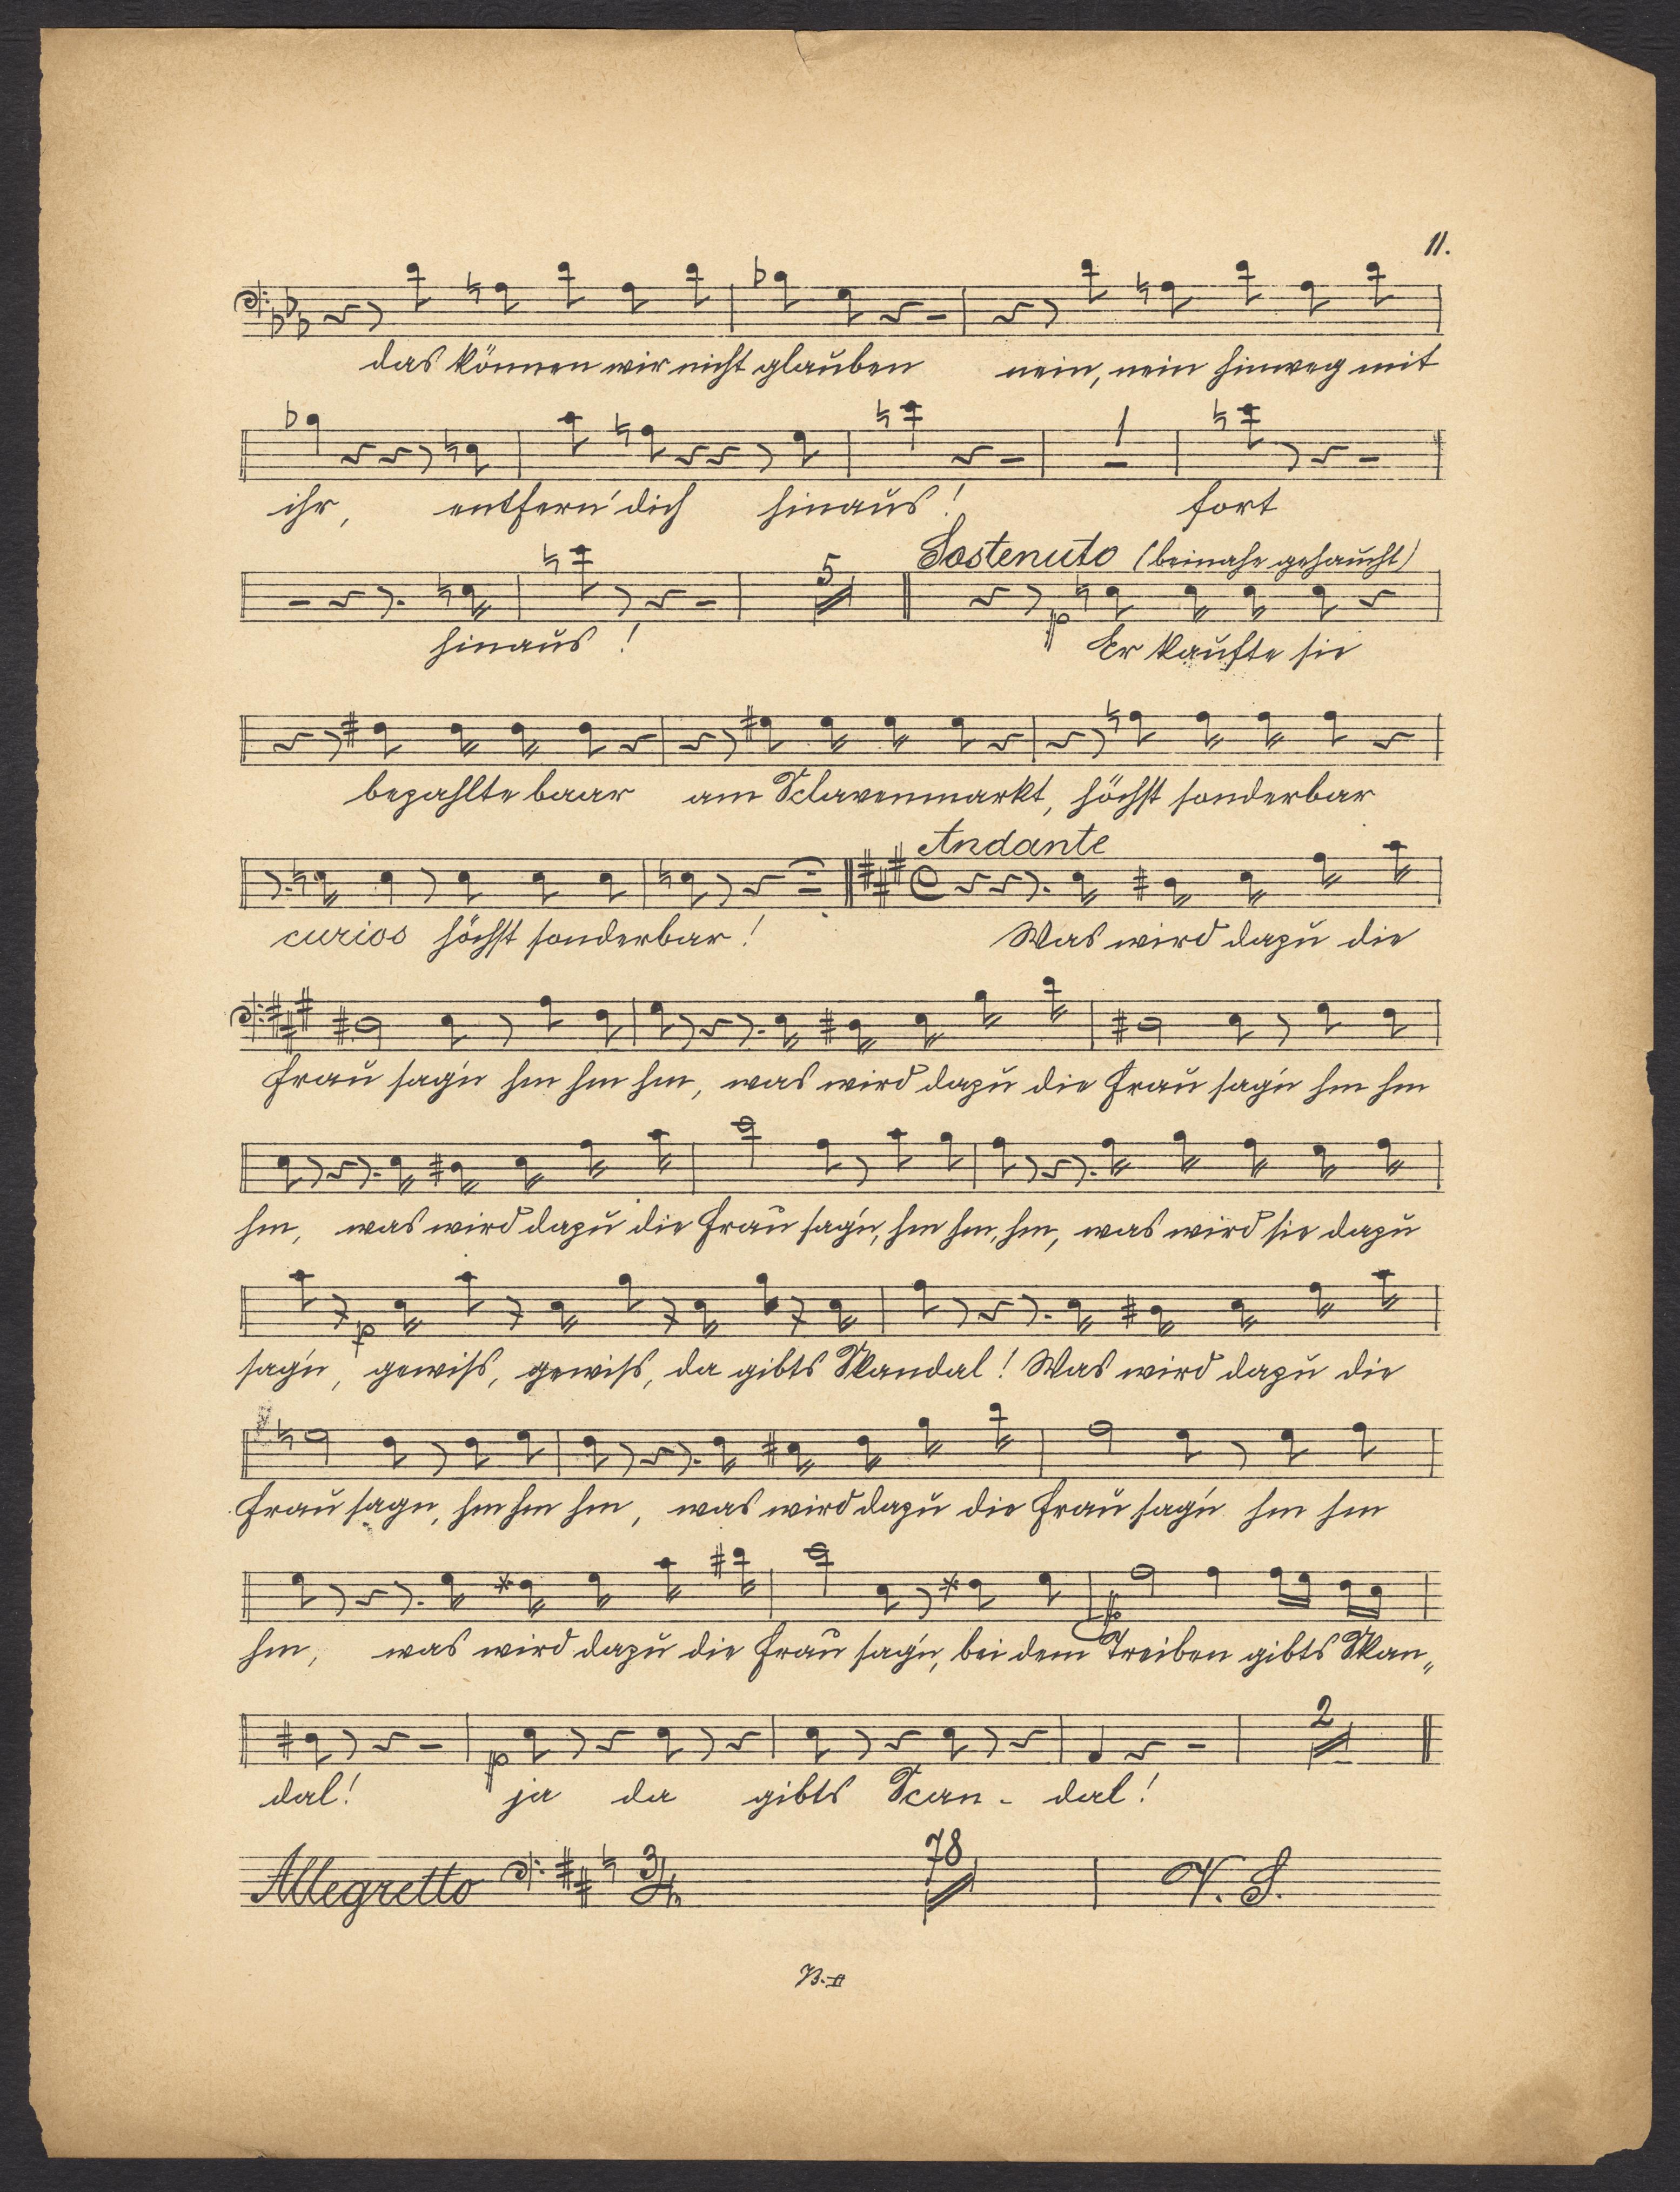 11.
das können wir nicht glauben nein, nein hinweg mit
ihr, entfern' dich hinaus! fort
Sostenuto (beinahe gehaucht)
5
hinaus! Er kaufte sie
bezahlte baar am Sclavenmarkt, höchst sonderbar
Andante
curios höchst sonderbar! Was wird dazu die
Frau sag'n hm hm hm, was wird dazu die Frau sag'n hm hm
hm, was wird dazu die Frau sag'n, hm hm, hm, was wird sie dazu
sag'n, gewiß, gewiß, da gibts Skandal! Was wird dazu die
Frau sagn, hm hm hm, was wird dazu die Frau sag'n hm hm
hm, was wird dazu die Frau sag'n, bei dem Treiben gibts Skan„
2
dal! ja da gibts Scan- dal!
Allegretto 3/4 78 V. S.